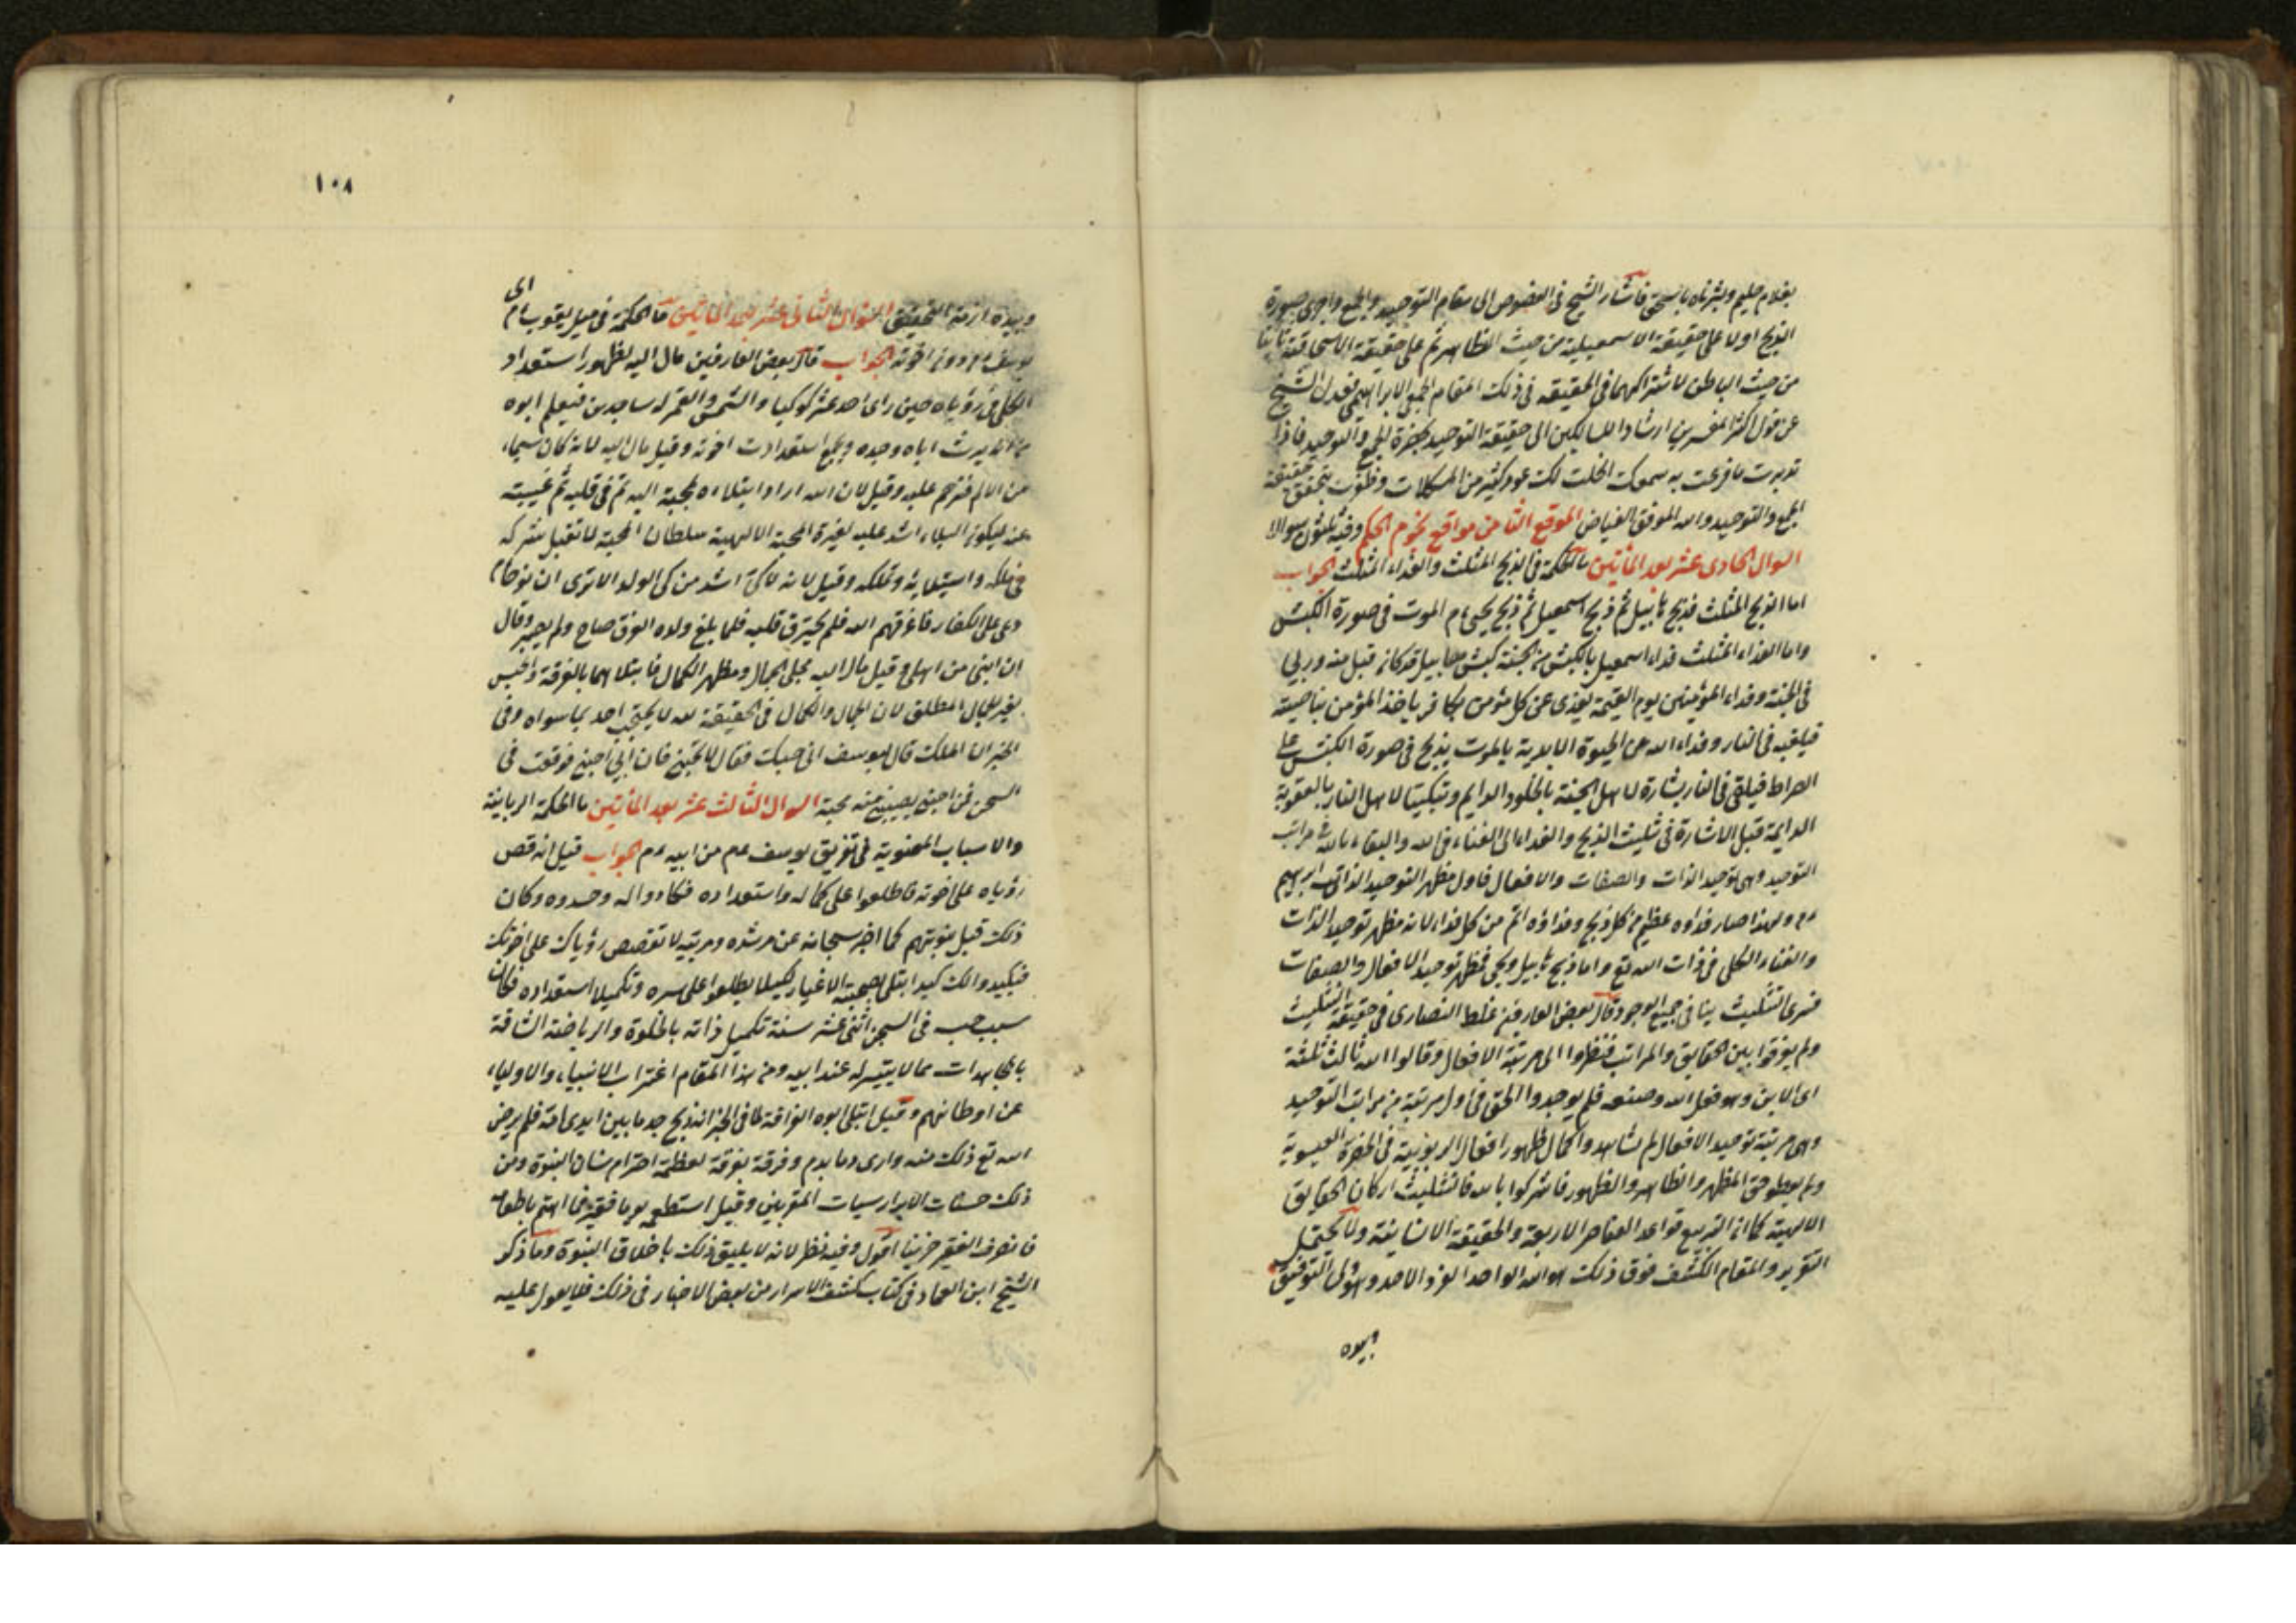 بغلام حليم وبشرناه باسحق فاشار الشيخ في الفصوص الى مقام التوحيد والجمع واجرى صورة
الذبح اولا على حقيقة الاسمعيلية من حيث الظاهر ثم على حقيقة الاسحاقية ثانيا
من حيث الباطن لاشتراكهما في الحقيقة في ذلك المقام الجمعي الابراهيمي فعدل الشيخ
عن قول اكثر المفسرين ارشادا للسالكين الى حقيقة التوحيد بحضرة الجمع والتوحيد فاذا
تدبرت ما قرعت به سمعك انحلت لك عن كثير من المشكلات وظفرت بتحقق حقيقة
الجمع والتوحيد والله الموفق الفياض الموقع الثامن مواقع نجوم الحكم وفيه ثلثون سوالا
السوال الحادى عشر بعد المأتين ما الحكمة في الذبح المثلث والفداء المثلث الجواب
اما الذبح المثلث فذبح هابيل ثم ذبح اسمعيل ثم ذبح يحيى ءم الموت في صورة الكبش
واما الفداء المثلث فداء اسمعيل بالكبش من الجنة كبش هابيل قد كان قبل منه وربي
في الجنة وفداء المؤمنين يوم القيمة يفدى عن كل مؤمن بكافر ياخذ المؤمن بناصيته
فيلقيه في النار وفداء الله عن الحيوة الابدية بالموت يذبح في صورة الكبش على
الصراط فيلقى في النار بشارة لاهل الجنة بالخلود الدايم وتبكيتا لاهل النار بالعقوبة
الدايمة قيل الاشارة في تثليث الذبح والفداء الى الفناء في الله والبقاء بالله في مراتب
التوحيد وهى توحيد الذات والصفات والافعال فاول مظهر التوحيد الذاتى ابراهيم
ءم ولهذا صار فداوه عظيم من كل ذبح وفداؤه اتم من كل فداء لانه مظهر توحيد الذات
والفناء الكلى في ذات الله تع واما ذبح هابيل ويحيى فمظهر توحيد الافعال والصفات
فسرى التثليث ينا في جميع الوجود قال بعض العارفين غلط النصارى في حقيقة التثليث
ولم يوفقوا بين الحقايق والمراتب فنظروا الى مرتبة الافعال وقالوا الله ثالث ثلثة
اى الابن وهو فعل الله وصنعه فلم يوجدوا الحق في اول مرتبة من مراتب التوحيد
وهى مرتبة توحيد الافعال لم شاهدوا كمال ظهور افعال الربوبية في الحضرة العيسوية
ولم يعطوا حق المظهر والظاهر والظهور فاشركوا بالله فالتثليث اركان الحقايق
الالهية كما ان التربيع قواعد العناصر الاربعة والحقيقة الانسانية ولا يحتمل
التقرير والمقام الكشف فوق ذلك هو الله الواحد الفرد الاحد وهو ولى التوفيق
وبيده
١٠٨
وبيده ازمة التحقيق السوال الثانى عشر بعد المأتين ما الحكمة في ميل يعقوب ءم الى
يوسف ءم دون اخوته الجواب قال بعض العارفين مال اليه لظهور استعداد
الكلى في رؤياه حين راى احد عشر كوكبا والشمس والقمر له ساجدين فيعلم ابوه
من انه يرث اباه وجده ويجمع استعدادت اخوته وقيل مال اليه لانه كان سيماء
من الالم فترحم عليه وقيل لان الله اراد ابتلاءه لمحبة اليه ثم في قلبه ثم غيبته
عنه ليكون البلاء اشد عليه لغيرة المحبة الالهية سلطان المحبة لا تقبل شركه
في ملكه واستيلائه وتملكه وقيل لانه لا كى اشد من كى الولد الا ترى ان نوحا ءم
دعى على الكفار فاغرقهم الله فلم يحترق قلبه فلما بلغ ولده الغرق صاح ولم يصبر وقال
ان ابنى من اهلى وقيل مال اليه مجلى الجمال ومظهر الكمال فابتلاهما بالفرقة والحبس
بغير الجمال المطلق لان الجمال والكمال في الحقيقة لله لا يحتجب احد بما سواه وفى
الخبر ان الملك قال ليوسف انى حبيك فقال لا تحبنى فان ابى احبنى فوقعت في
السجن فمن احبنى يصيبنى منه محبة السوال الثالث عشر بعد المأتين ما الحكمة الربانية
والاسباب المعنوية في تفريق يوسف ءم من ابيه ءم الجواب قيل انه قص
رؤياه على اخوته فاطلعوا على كماله واستعداده فكادوا له وحسدوه وكان
ذلك قبل نبوتهم كما اخبر سبحانه عن مرشده ومربيه لا تقصص رؤياك على اخوتك
فيكيدوا لك كيدا ابتلى بصحبة الاغيار لكيلا يطلعوا على سره وتكميلا استعداده فكان
سبب حب في السجن اثنى عشر سنة تكميل ذاته بالخلوة والرياضة الشاقة
بالمجاهدات مما لا يتيسر له عند ابيه ومن هذا المقام اغتراب الانبياء والاولياء
عن اوطانهم وقيل ابتلى ابوه الفراقة لما في الخبر انه ذبح جديا بين ايدى امه فلم يرض
الله تع ذلك منه وارى دما بدم وفرقة بفرقة لعظمة احترام شان النبوة ومن
ذلك حسنات الابرار سيات المقربين وقيل استطعمه يوما فقير فما اهتم باطعامه
فانصرف الفقير حزينا اقول وفيه نظر لانه لا يليق ذلك باخلاق النبوة وما ذكر
الشيخ ابن العماد في كتاب كشف الاسرار من بعض الاخبار في ذلك فلا يعول عليه